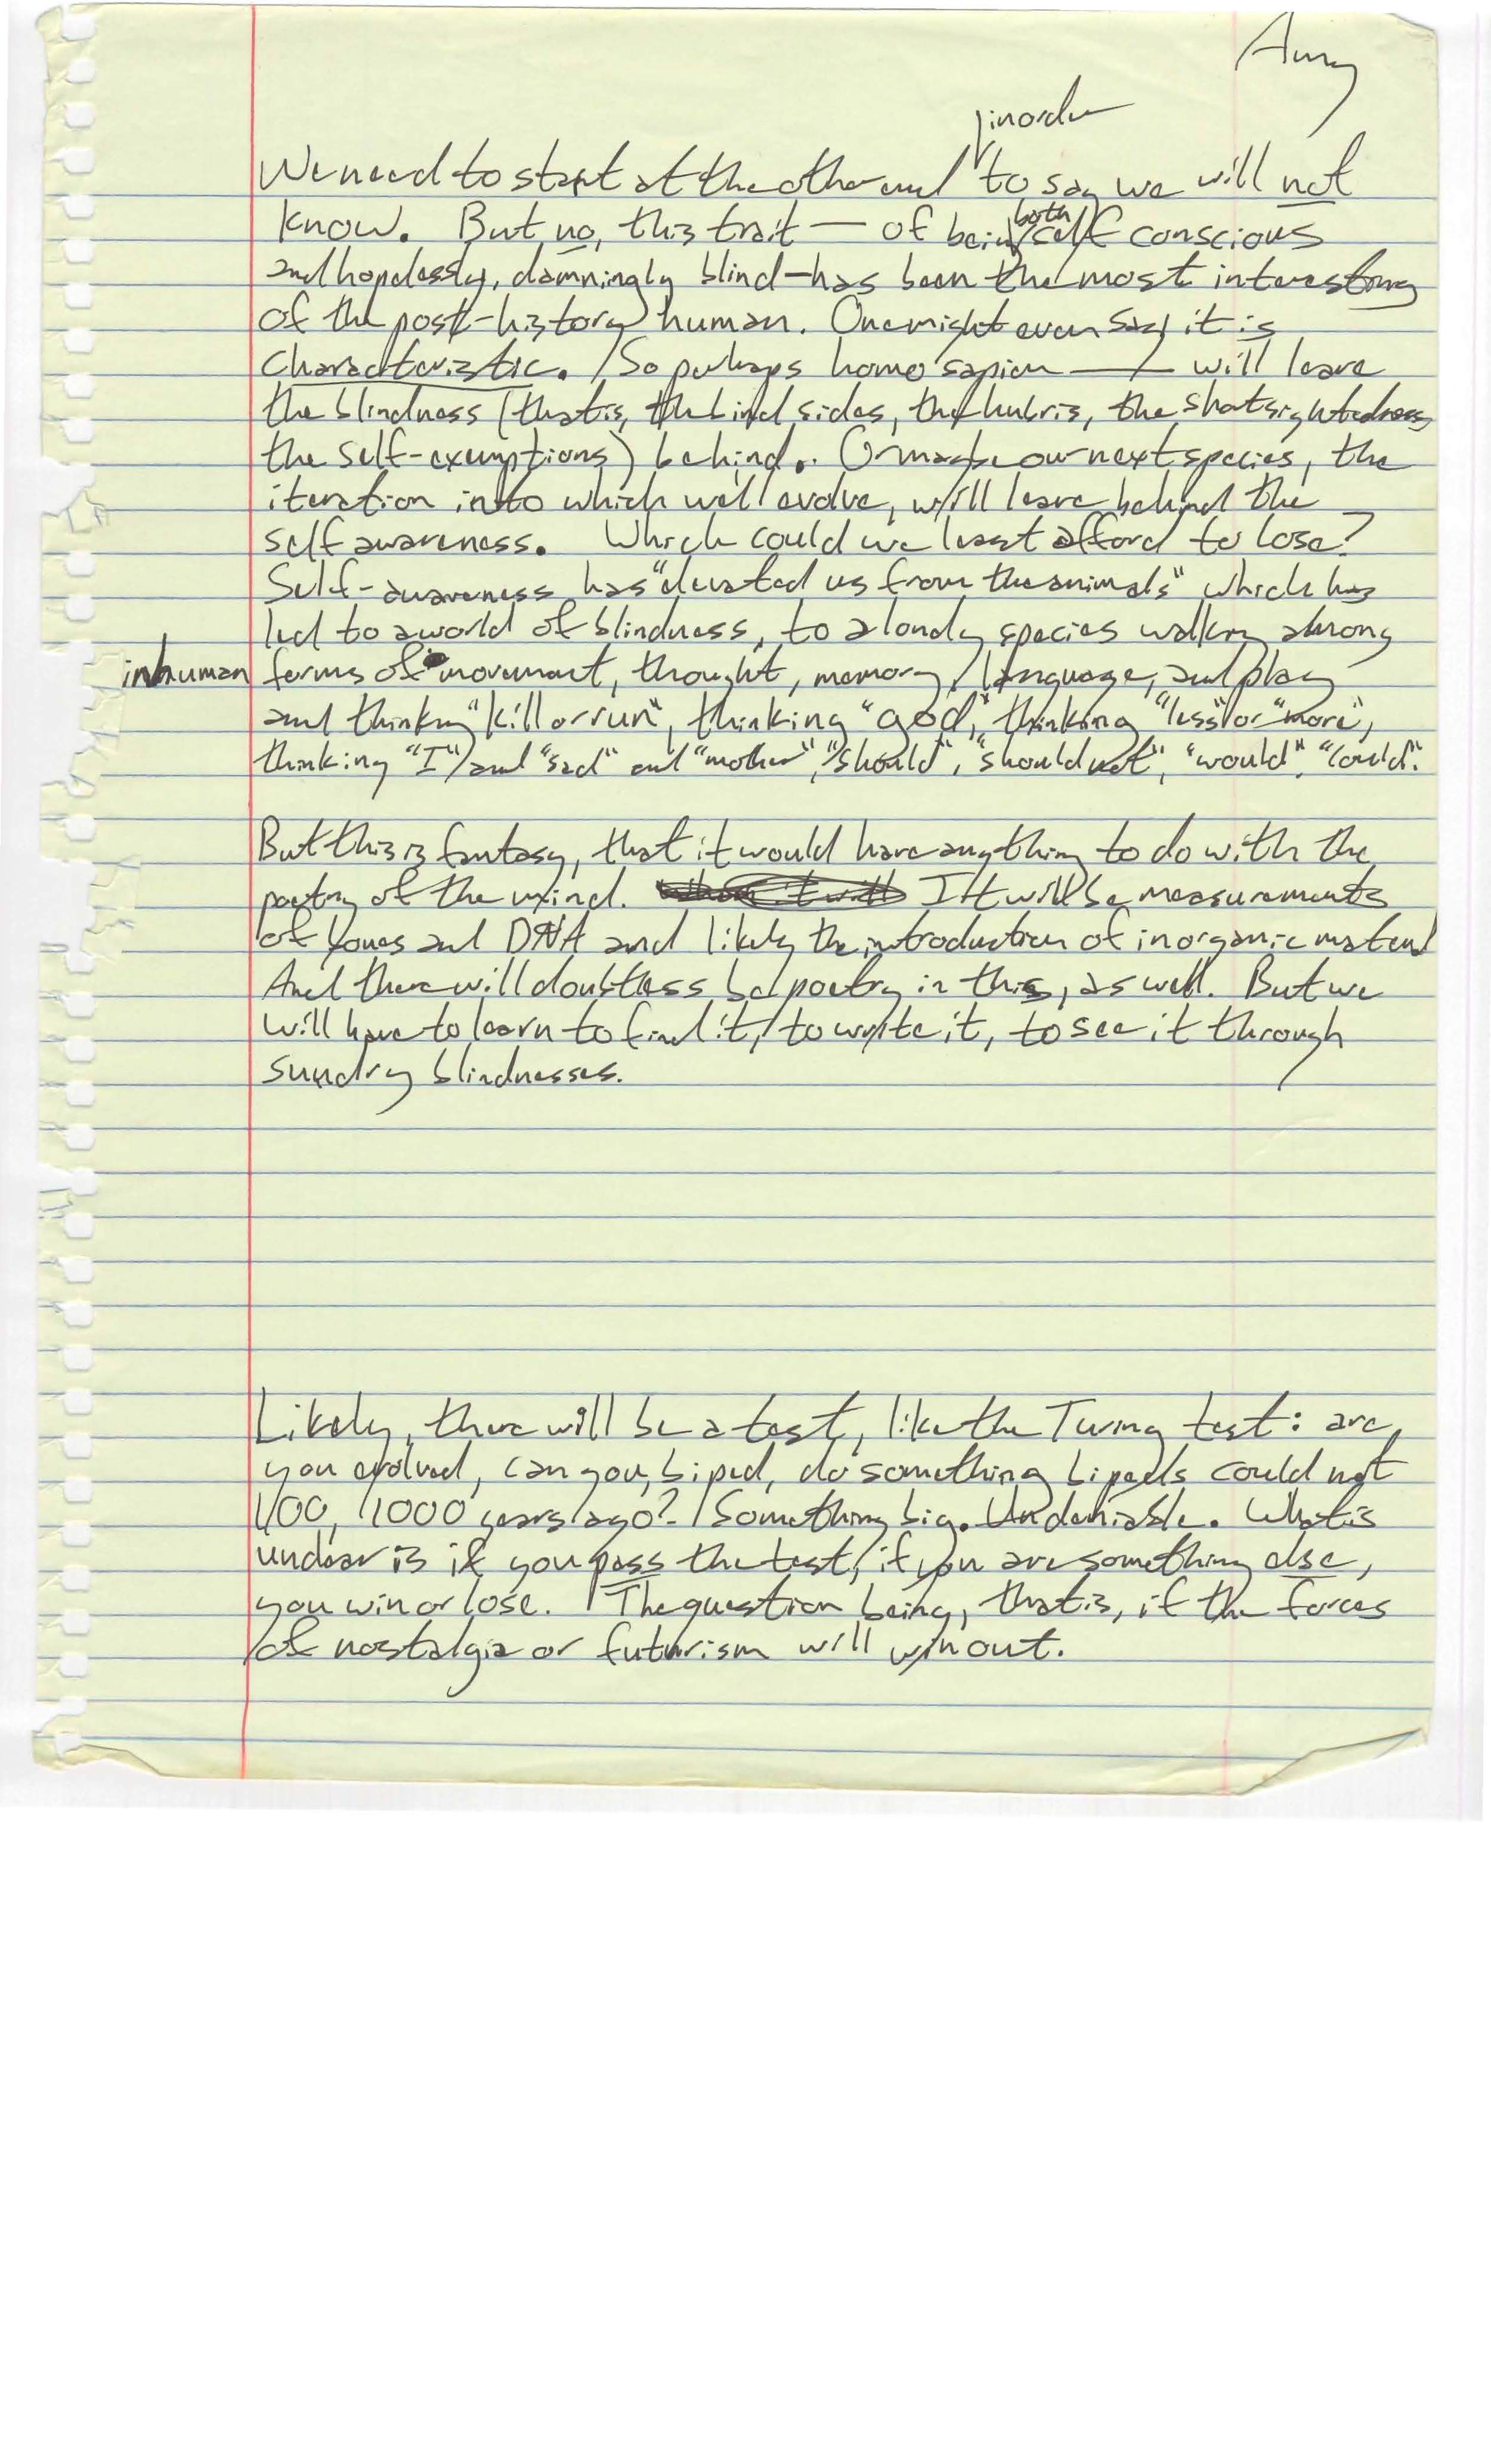 Amy
in order
We need to start at the other end to say we will not
know. But no, this trait — of being both self conscious
and hopelessly, damningly blind – has been the most interesting
of the post-history human. One might even say it is
characteristic. So perhaps homo sapien — will leave
the blindness (that is, the blind sides, the hubris, the shortsightedness,
the self-exemptions) behind. Or maybe our next species, the
iteration into which we'll evolve, will leave behind the
self awareness. Which could we least afford to lose?
Self-awareness has "elevated us from the animals" which has
led to a world of blindness, to a lonely species walking among
inhuman forms of movement, thought, memory, language, and play
and thinking "kill or run", thinking "god," thinking "less" or "more",
thinking "I" and "sad" and "mother", "should", "should not", "would", "could".
But this is fantasy, that it would have anything to do with the
poetry of the mind. It will be measurements
of bones and DNA and likely the introduction of inorganic material
And there will doubtless be poetry in this, as well. But we
will have to learn to find it, to write it, to see it through
sundry blindnesses.
Likely, there will be a test, like the Turing test: are
you evolved, can you, biped, do something bipeds could not
100, 1000 years ago? Something big. Undeniable. What is
unclear is if you pass the test, if you are something else,
you win or lose. The question being, that is, if the forces
of nostalgia or futurism will win out.